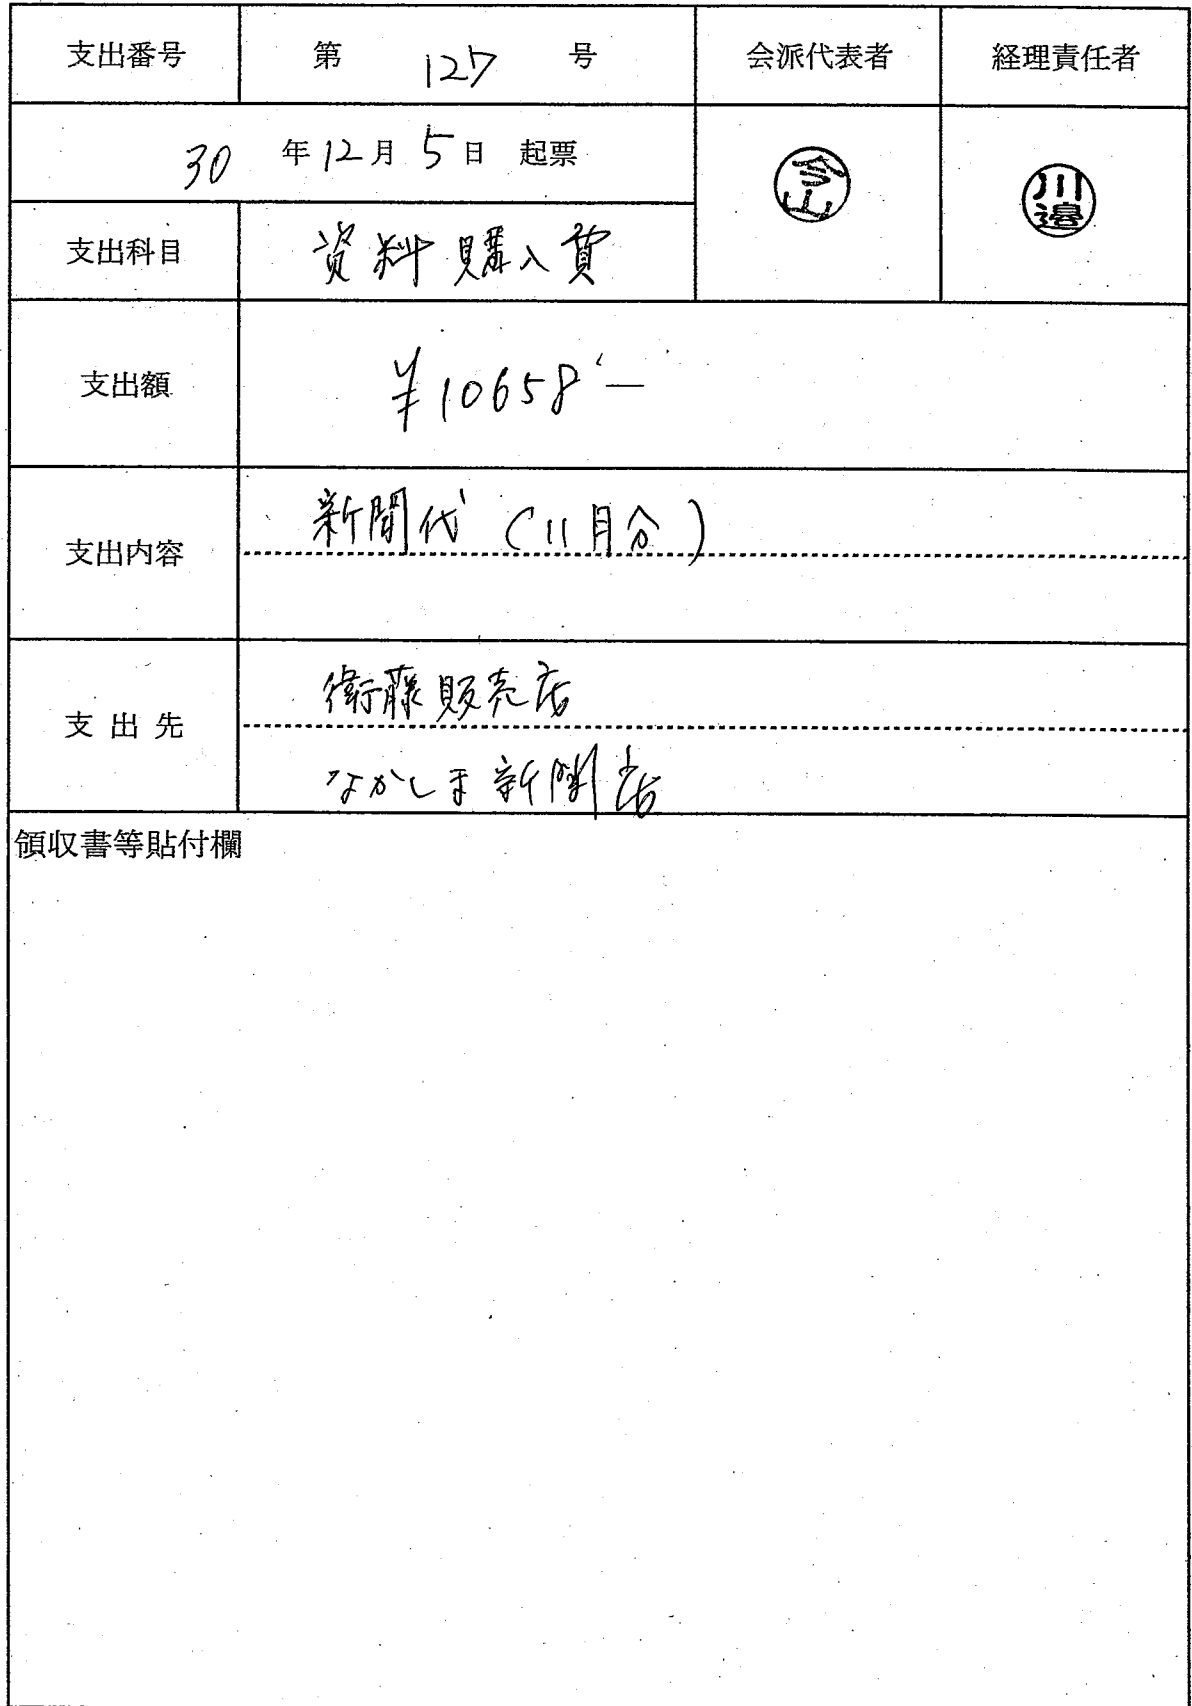 支出番号 第 127 号 会派代表者 経理責任者
30 年 12 月 5 日 起票
今山
川邉
支出科目 資料購入費
支出額 ¥10658'—
支出内容 新聞代 (11月分)
支出先 衛藤販売店
なかしま新聞店
領収書等貼付欄